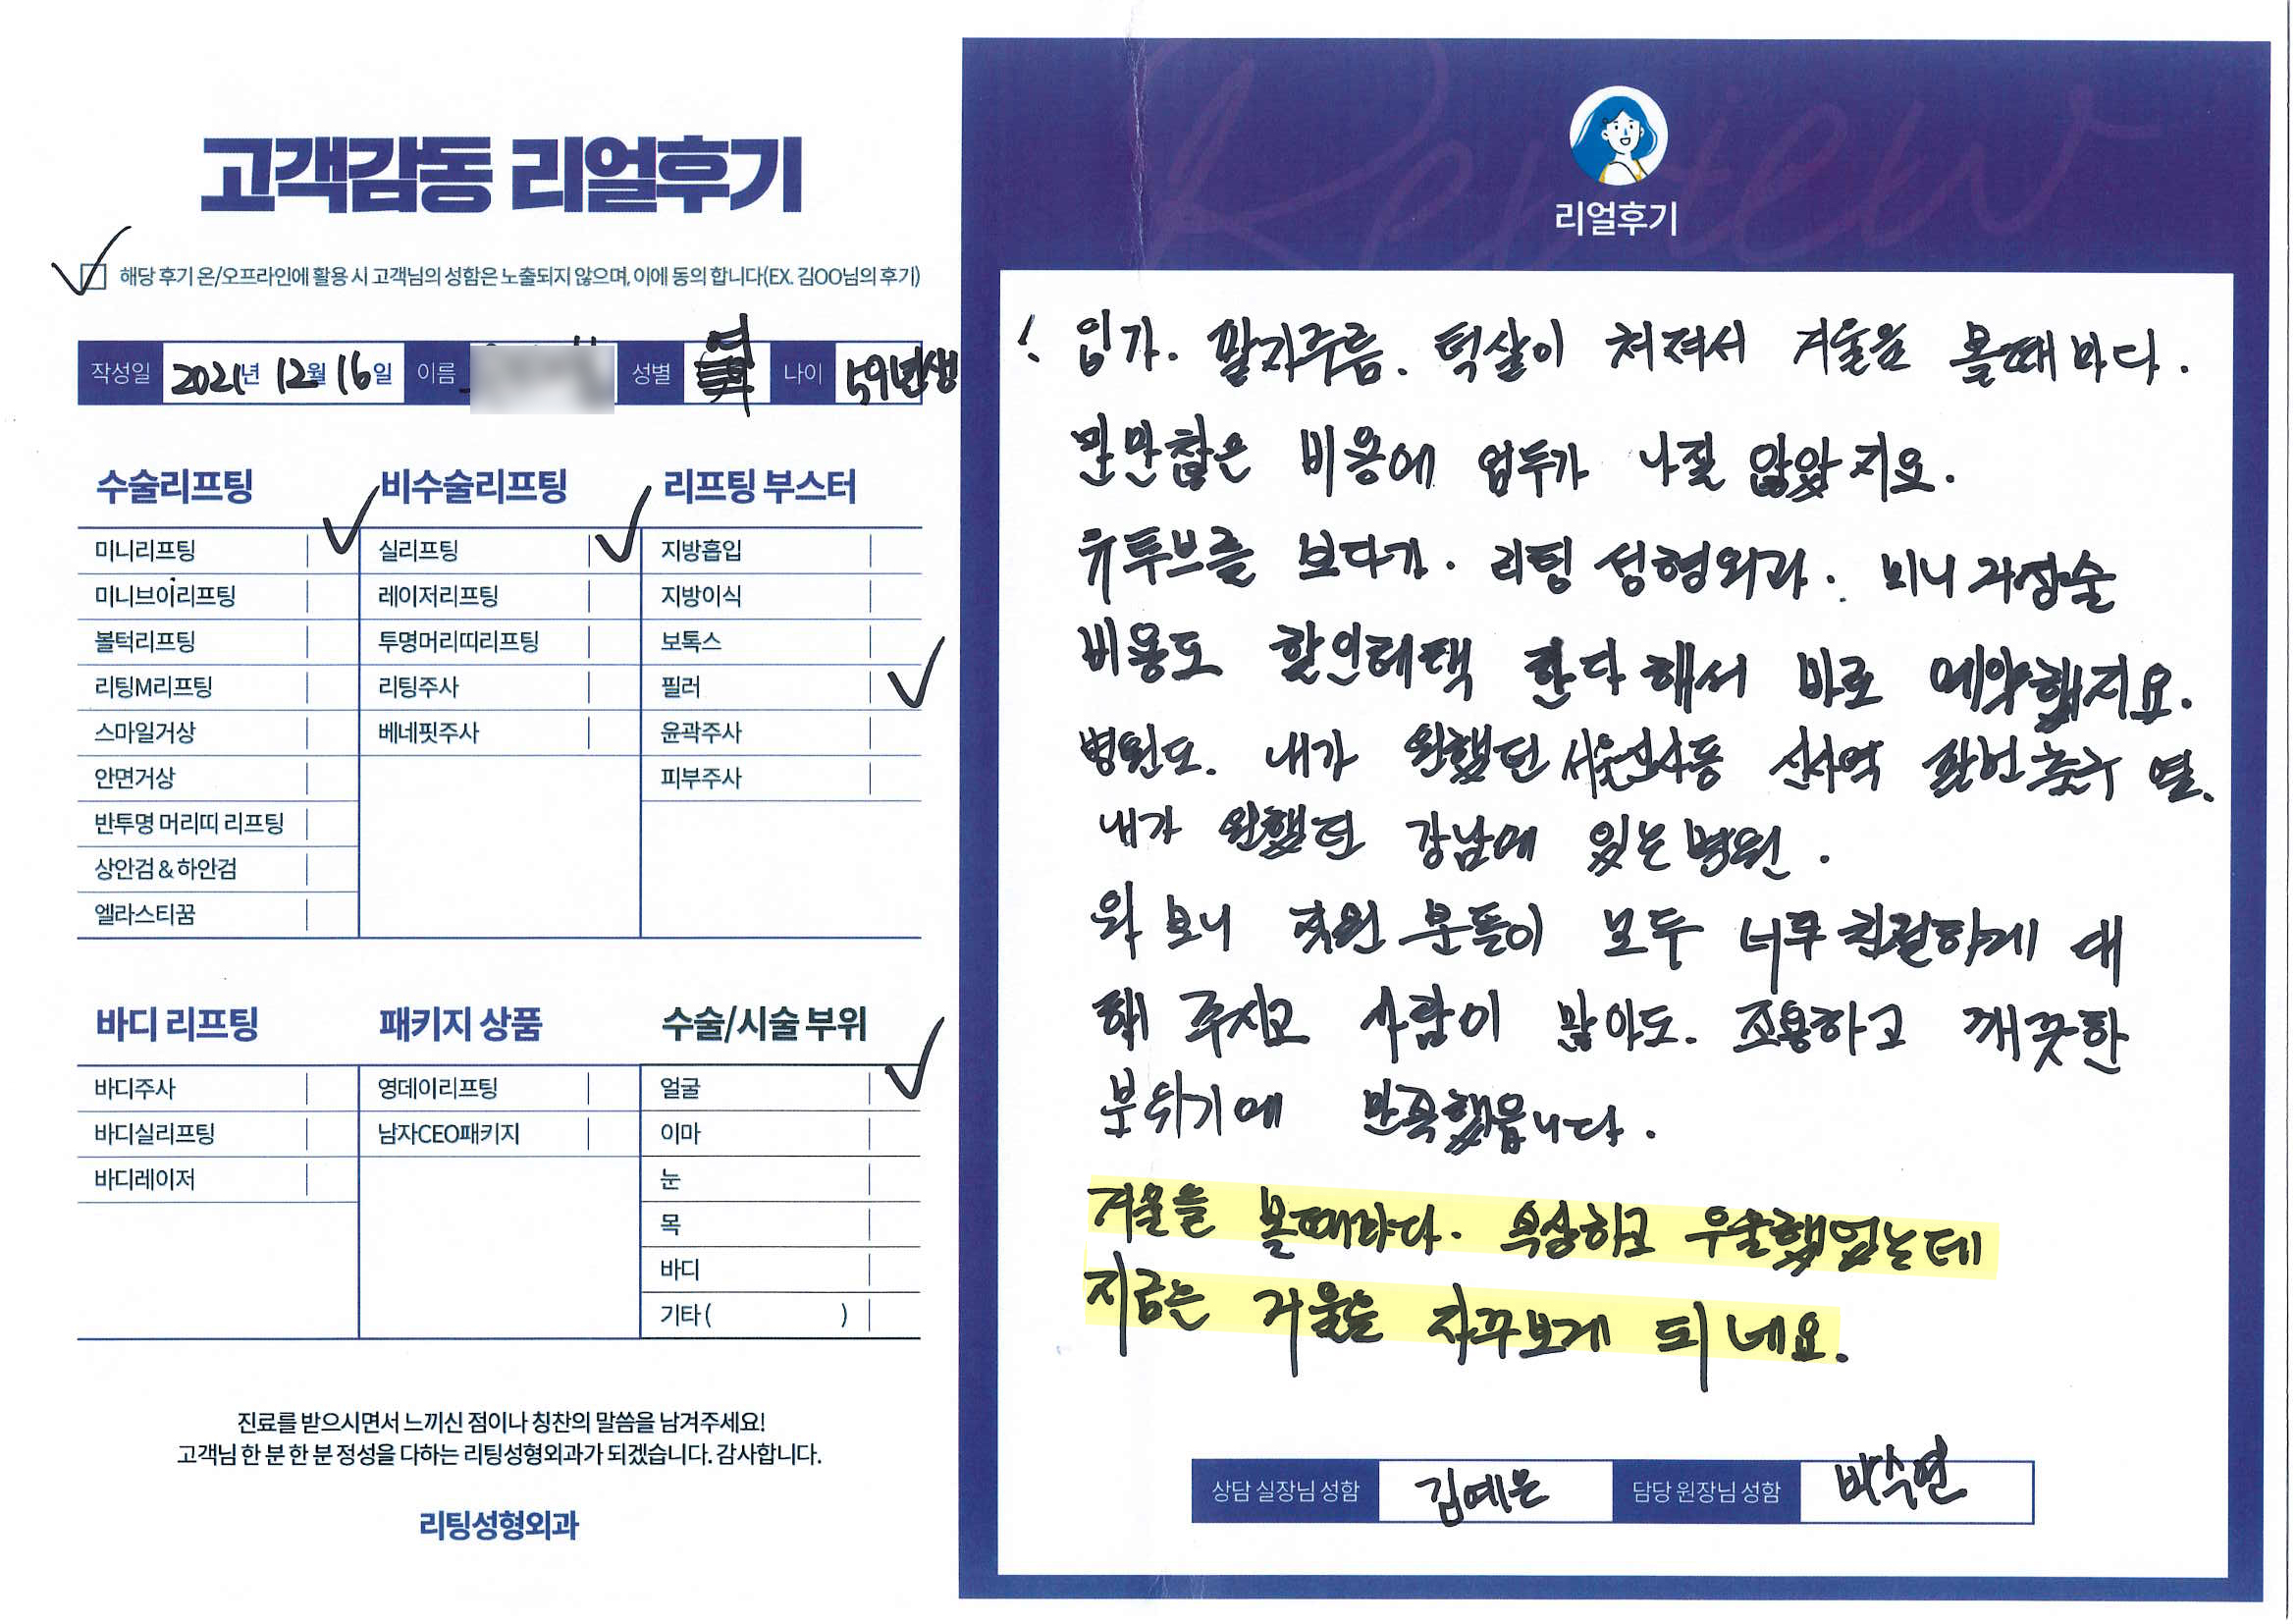 고객감동 리얼후기
해당 후기 온/오프라인에 활용 시 고객님의 성함은 노출되지 않으며, 이에 동의 합니다(EX. 김OO님의 후기)
작성일 2021년 12월 16일 이름 성별 여 나이 59년생
수술리프팅
미니리프팅
미니브이리프팅
볼턱리프팅
리팅M리프팅
스마일거상
안면거상
반투명 머리띠 리프팅
상안검 & 하안검
엘라스티꿈
비수술리프팅
실리프팅
레이저리프팅
투명머리띠리프팅
리팅주사
베네핏주사
리프팅 부스터
지방흡입
지방이식
보톡스
필러
윤곽주사
피부주사
바디 리프팅
바디주사
바디실리프팅
바디레이저
패키지 상품
영데이리프팅
남자CEO패키지
수술/시술 부위
얼굴
이마
눈
목
바디
기타 ( )
진료를 받으시면서 느끼신 점이나 칭찬의 말씀을 남겨주세요!
고객님 한 분 한 분 정성을 다하는 리팅성형외과가 되겠습니다. 감사합니다.
리팅성형외과
Review
리얼후기
입가. 팔자주름. 턱살이 쳐져서 거울을 볼때마다.
만만찮은 비용에 엄두가 나질 않았지요.
유투브를 보다가. 리팅 성형외과. 미니거상술
비용도 할인혜택 한다해서 바로 예약했지요.
병원도. 내가 원했던 서울신사동 신사역 출구 옆.
내가 원했던 강남에 있는 병원.
와 보니 직원 분들이 모두 너무 친절하게 대
해 주시고 사람이 많아도. 조용하고 깨끗한
분위기에 만족했읍니다.
거울을 볼때마다. 속상하고 우울했었는데
지금은 거울을 자꾸보게 되네요.
상담 실장님 성함 김예은 담당 원장님 성함 박수연